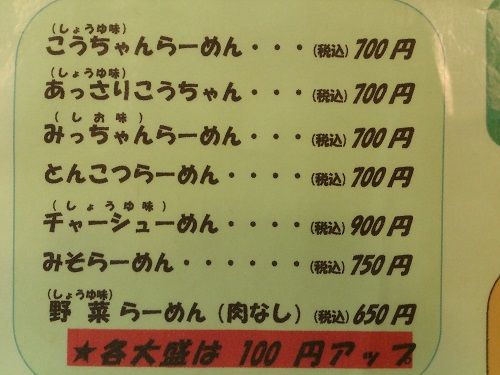 (しょうゆ味)
こうちゃんらーめん・・・(税込)700円
(しょうゆ味)
あっさりこうちゃん・・・・(税込)700円
(しお味)
みっちゃんらーめん・・・・(税込)700円
とんこつらーめん・・・・・(税込)700円
(しょうゆ味)
チャーシューめん・・・・(税込)900円
みそらーめん・・・・・・(税込)750円
(しょうゆ味)
野菜らーめん(肉なし)(税込)650円
★各大盛は100円アップ